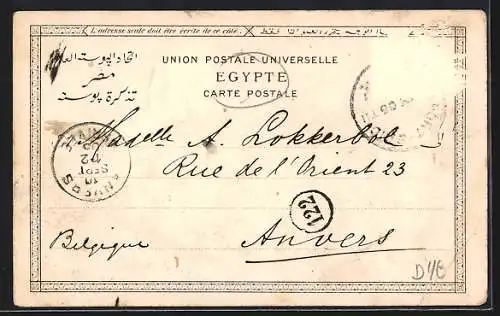 L'adresse seule doit être écrite de ce côté.
اتحاد البوستة العا
UNION POSTALE UNIVERSELLE
مصر
EGYPTE
تذكرة بوستة
CARTE POSTALE
Madelle A. Lokkerbol
Rue de l'Orient 23
122
Belgique
Anvers
ANVERS
12
SEPT
10
D4C